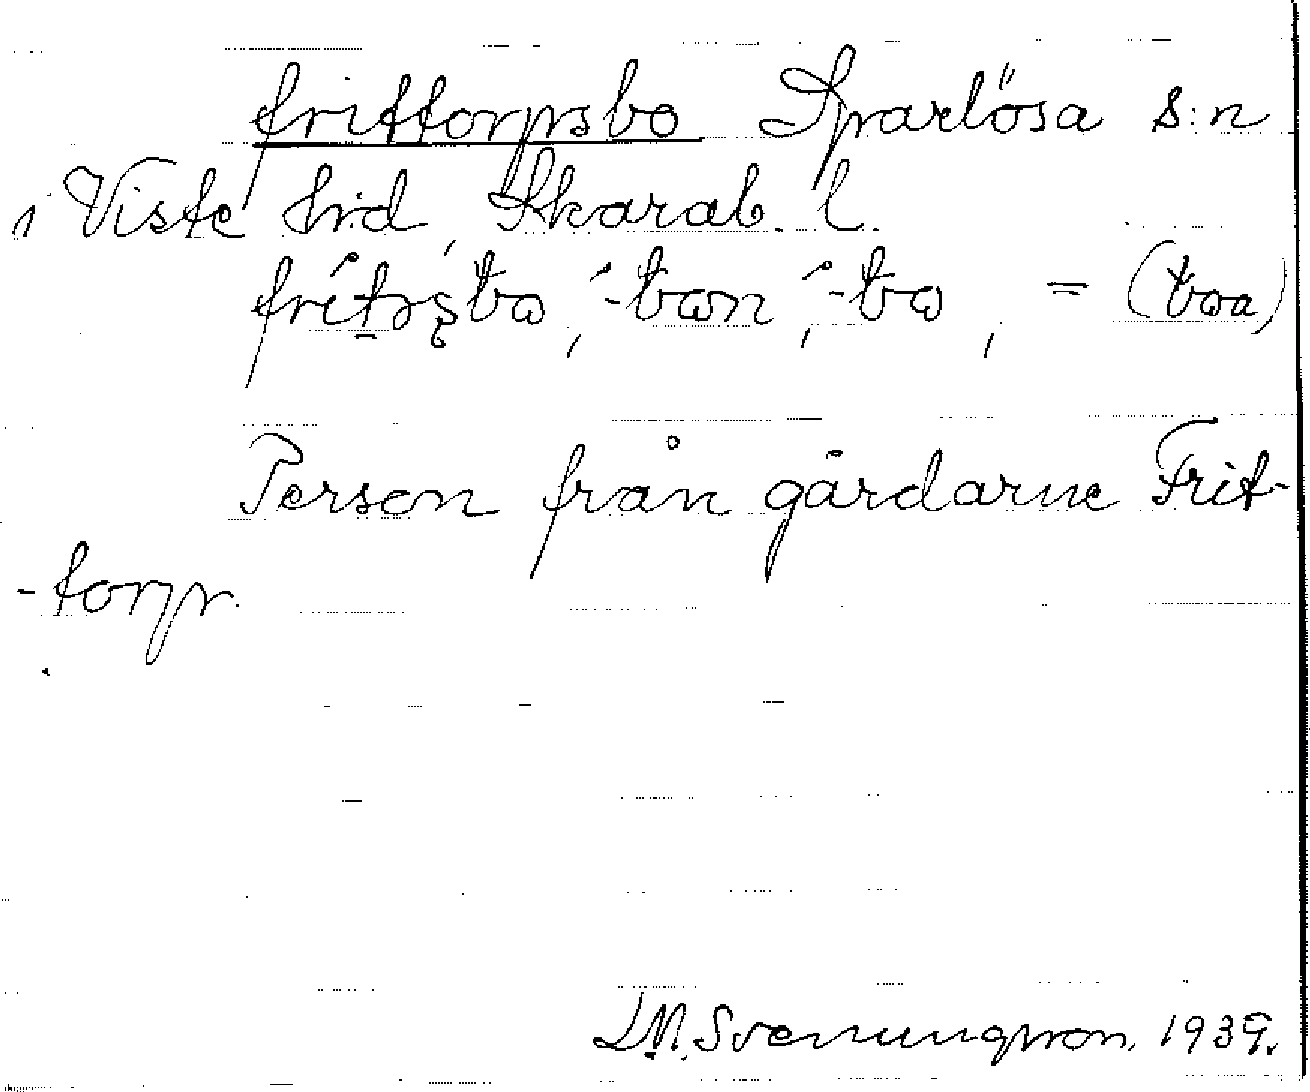 frittorpsbo Sparlösa s:n
i Viste hrd, Skarab. l.
-bon, -bo, = (boa)
Person från gårdarne Frit-
-torp.
L.M. Svenungsson. 1939.